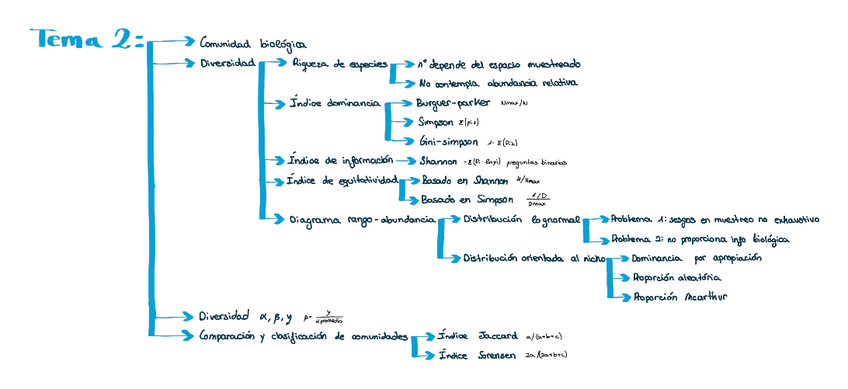 Tema 2:
Comunidad biológica
Diversidad
Riqueza de especies
nº depende del espacio muestreado
No contempla abundancia relativa
Índice dominancia
Burguer-parker Nmax/N
Simpson Σ(pi2)
Gini-simpson 1-Σ(pi2)
Índice de información
Shannon -Σ(Pi·lnpi) preguntas binarias
Índice de equitatividad
Basado en Shannon H/Hmax
Basado en Simpson 1/D / Dmax
Diagrama rango-abundancia
Distribución lognormal
Problema 1: sesgos en muestreo no exhaustivo
Problema 2: no proporciona info biológica
Distribución orientada al nicho
Dominancia por apropiación
Proporción aleatória
Proporción Mcarthur
Diversidad α, β, γ β= γ/αpromedio
Comparación y clasificación de comunidades
Índice Jaccard a/(a+b+c)
Índice Sorensen 2a/(2a+b+c)